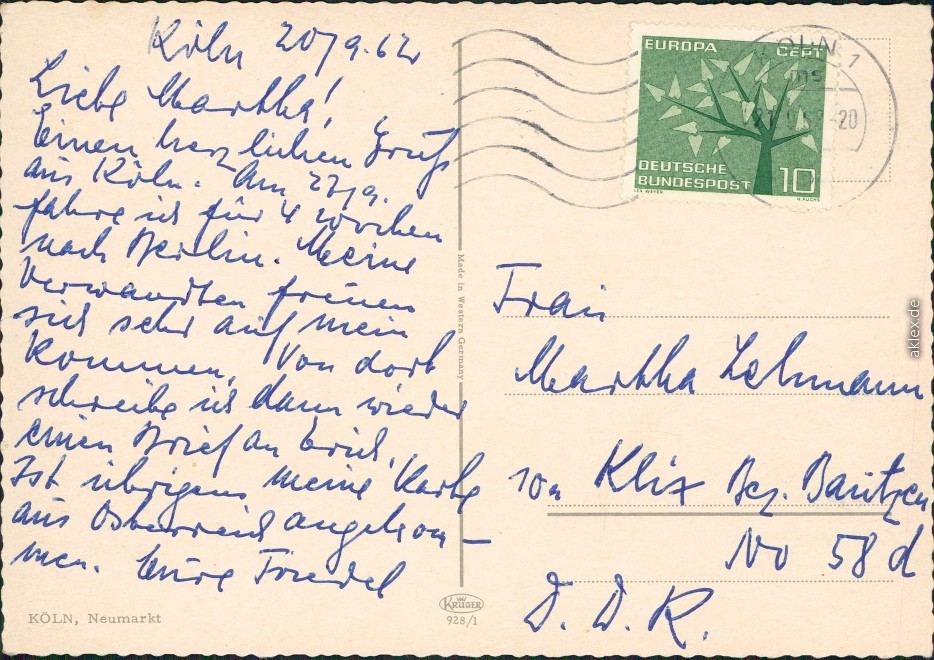 Köln 20/9.62
Liebe Martha!
Einen herzlichen Gruß
aus Köln. Am 27/9.
fahre ich für 4 Wochen
nach Berlin. Meine
Verwandten freuen
sich sehr auf mein
Kommen. Von dort
schreibe ich dann wieder
einen Brief an Erich.
Ist übrigens meine Karte
aus Österreich angekom-
men. Eure Friedel
KÖLN, Neumarkt
Made in Western Germany
KRÜGER
928/1
EUROPA CEPT
DEUTSCHE
BUNDESPOST 10
KÖLN 1
-20
Frau
Martha Lehmann
Klix Bez. Bautzen
No 58 d
D. D. R.
aklex.de